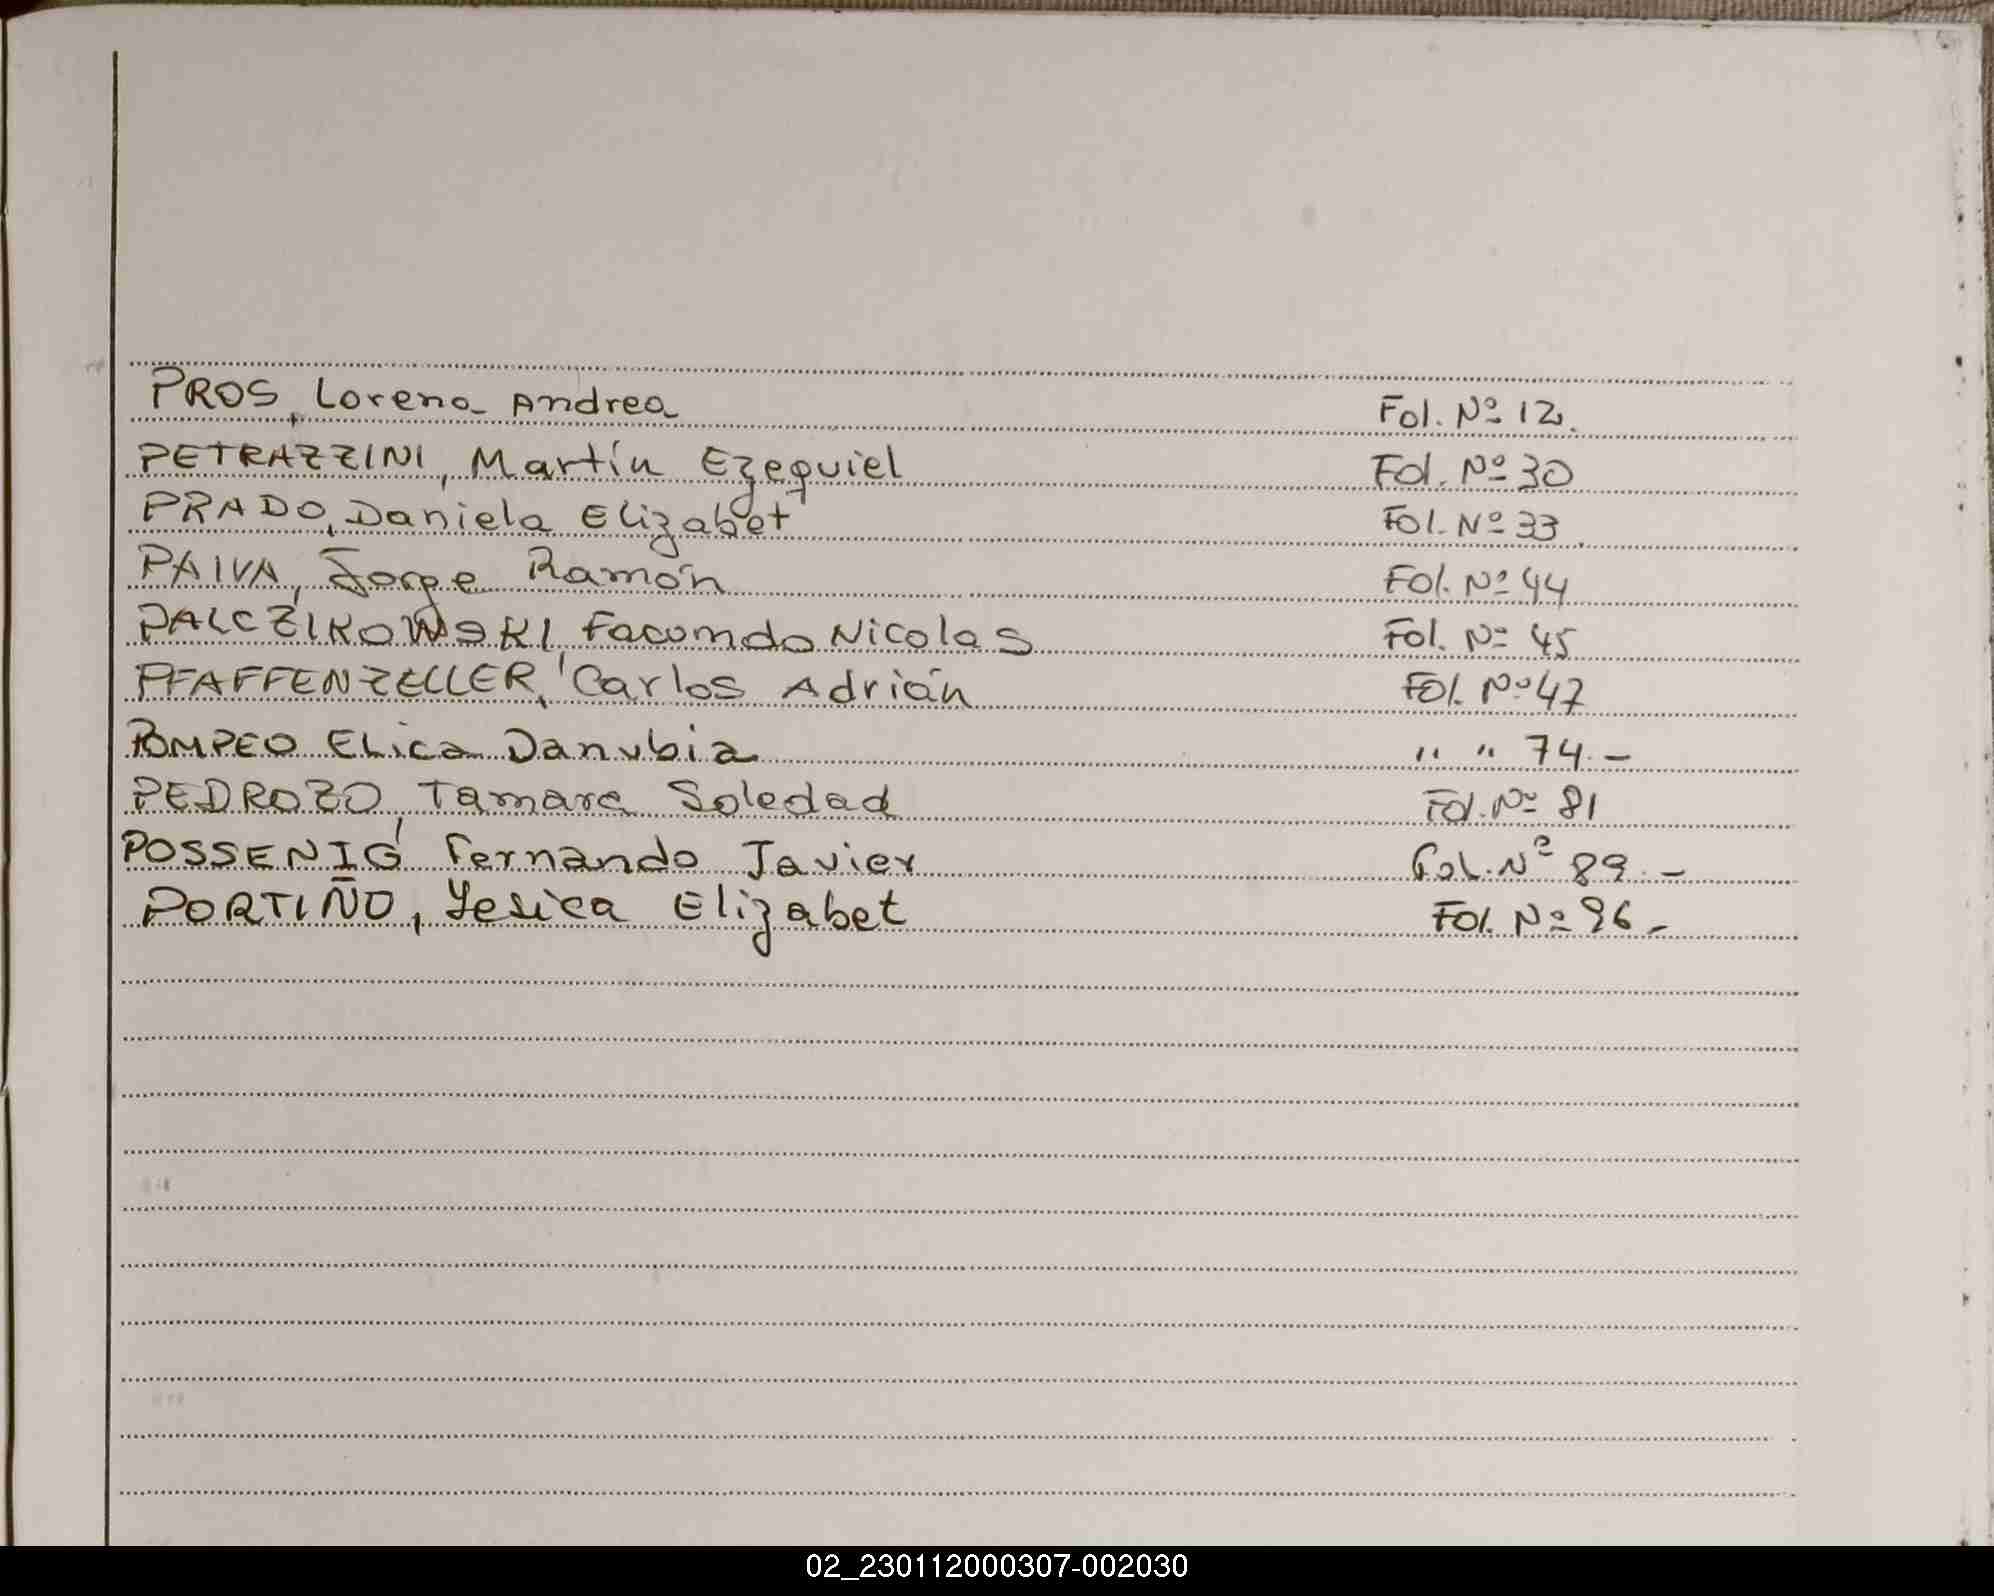 PROS, Lorena Andrea Fol. Nº 12.
PETRAZZINI, Martín Ezequiel Fol. Nº 30
PRADO, Daniela Elizabet Fol. Nº 33
PAIVA, Jorge Ramón Fol. Nº 44
PALCZIKOWSKI, Facomdo Nicolas Fol. Nº 45
PFAFFENZELLER, Carlos Adrián Fol. Nº 47
POMPEO Elica Danubia " " 74.-
PEDROZO, Tamara Soledad Fol. Nº 81
POSSENIG Fernando Javier Fol. Nº 89.-
PORTIÑO, Yesica Elizabet Fol. Nº 96.-
02_230112000307-002030